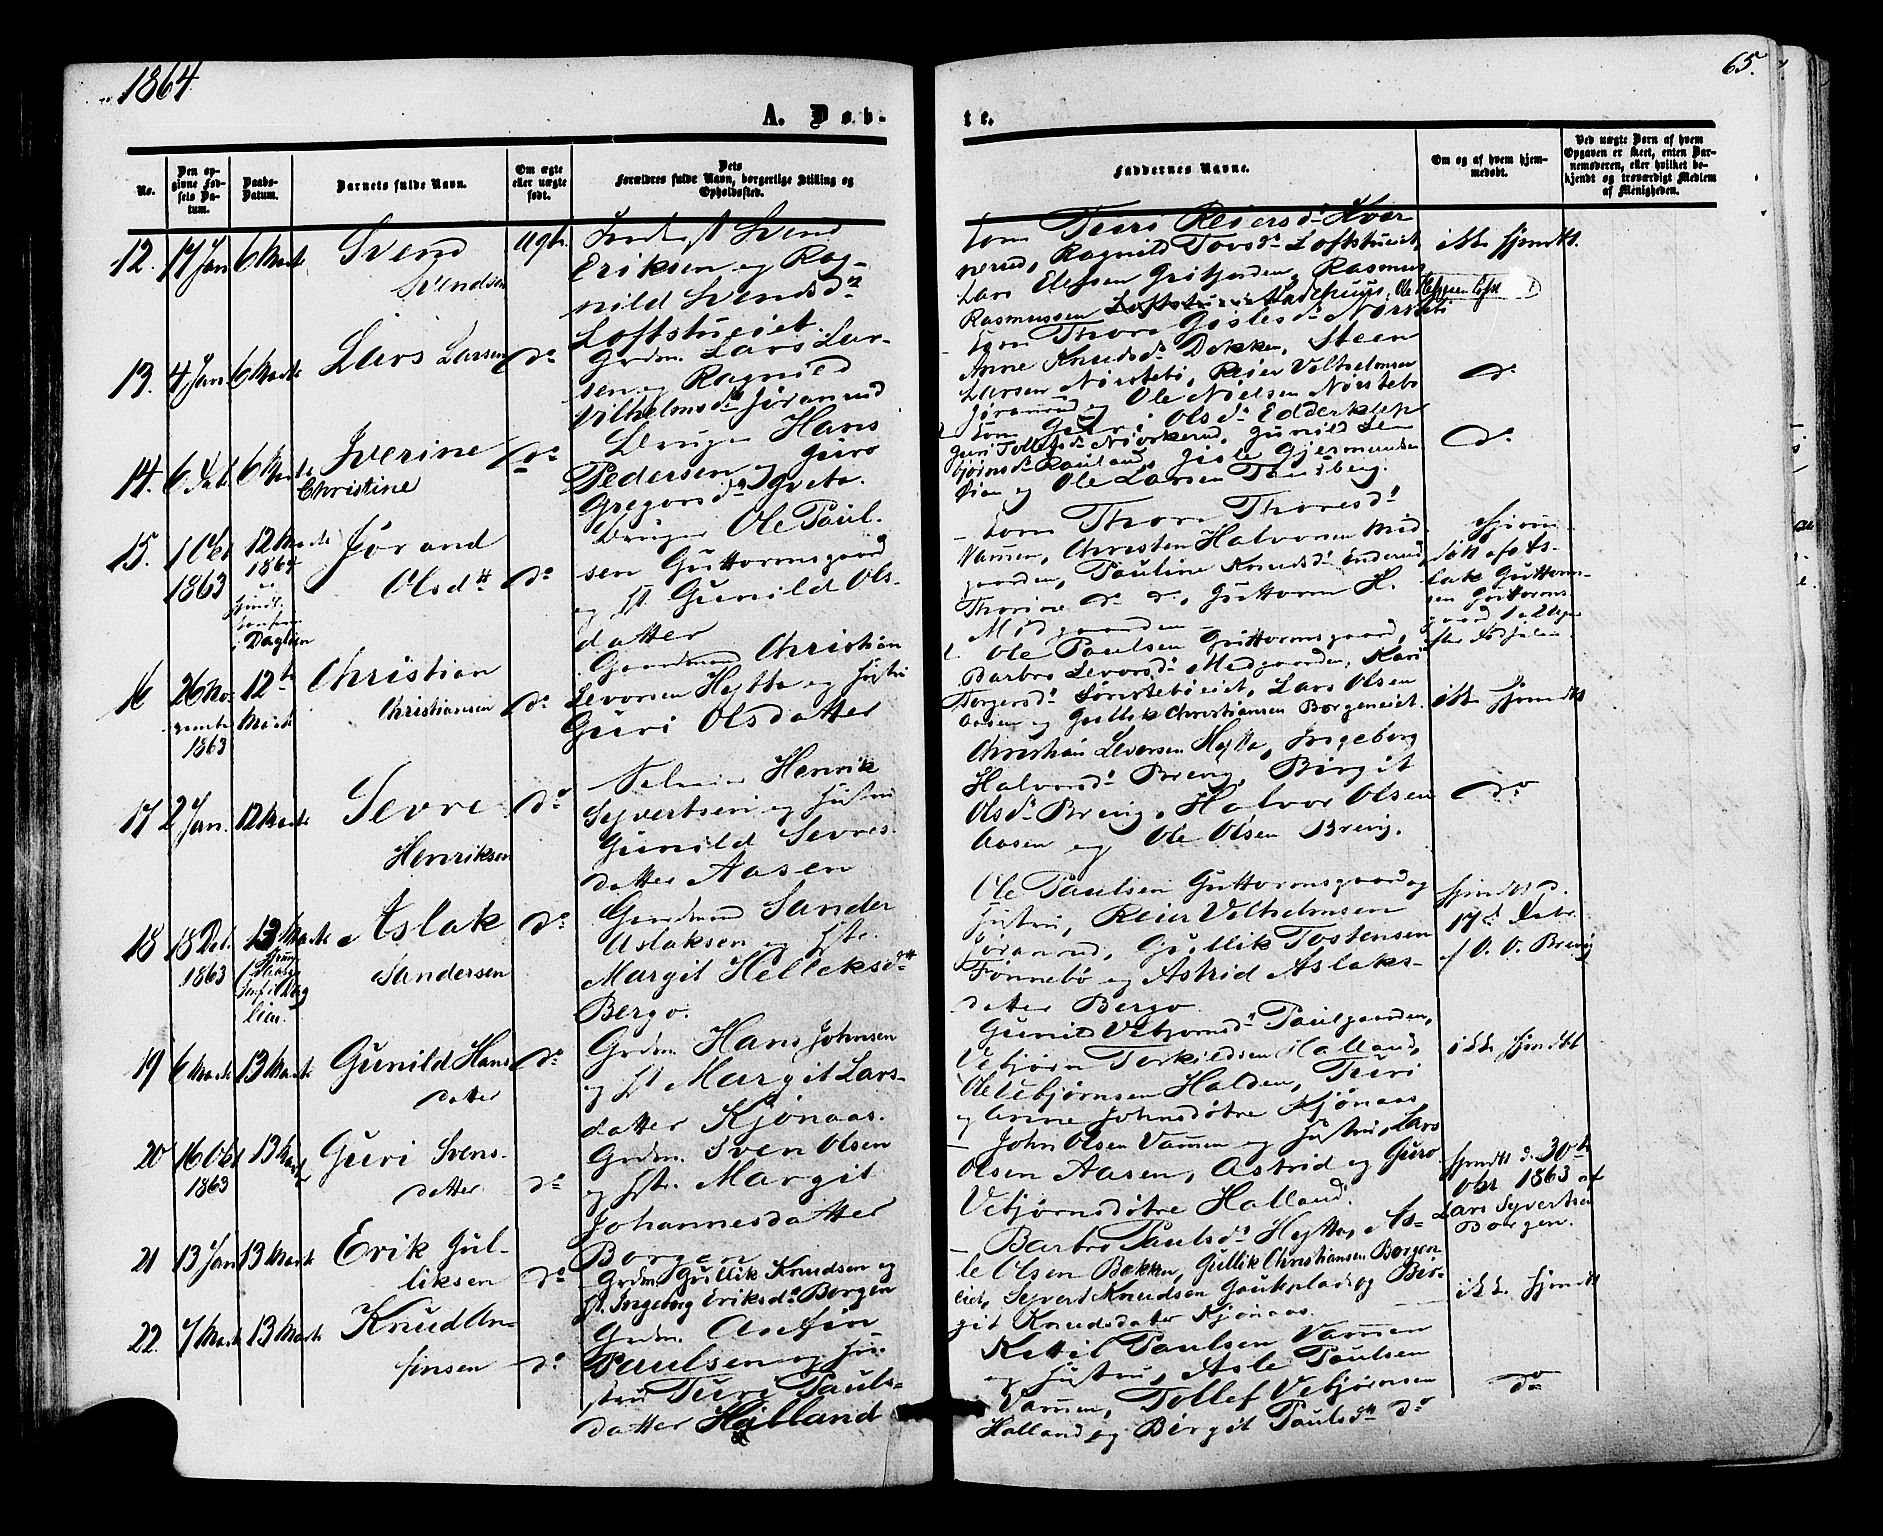 1864.
65.
A. Døb-
te.
No.
Den opgivne Fødsels Datum.
Daabs-Datum.
Barnets fulde Navn.
Om ægte eller uægte født.
Dets Forældres fulde Navn, borgerlige Stilling og Opholdssted.
Faddernes Navne.
Om og af hvem hjemmedøbt.
Ved uægte Børn af hvem Opgaven er skeet, enten Barnemoderen, eller hvilket bekjendt og troværdigt Medlem af Menigheden.
12. 17 Jan 6 Marts Svend Svendsen ægte
Svend
Eriksen og Rag-
nild Svendsdr
Loftstueiet.
Turi Reiersdr Kver
nerud, Ragnild Torsdr Loftstueiet,
Lars Elefsen Grifjorden, Rasmus
Rasmussen Ladehuus, Ole
ikke hjemdt.
13. 4 Jan 6 Marts Lars Larsen do
Grdm. Lars Lar-
sen og Ragnild
Vilhelmsdr Jøranrud
Thora Gislesdr Nørstebø
Anne Knudsdr Dokken, Steen
Larsen Nørstebø, Reier Vilhelmsen
Jøranrud og Ole Nielsen Nørstebø
do
14. 6 6 Marts Iverine Christine do
Bruger Hans
Pedersen og Guro
Gregorsdr
Guri Olsdr Edderklep
Guri Tollefsdr Gunild
bjørnsdr Rauland, Gisle Gjermundsen
og Ole Larsen
do
15. 1 Oct 1863 12 Marts 1864
i Daglien
Jørand
Olsdtr do
Bruger Ole Paul-
sen Guttormsgaard
og H. Gunild Ols-
datter
Thore Thoresdr
Vammen, Christen Halvorsen Mid
gaarden, Pauline Knudsdr Enderud,
Thorine do do, Guttorm H.
Midgaarden
Hjem-
døbt af As-
lak Guttorm-
sen Guttorms-
gaard
efter Fødselen
16 26 November 1863 12te Marts Christian Christiansen do
Gaardmand Christian
Levorsen Hytte og Hustru
Guri Olsdatter
Ole Paulsen Guttormsgaard,
Barbro Levorsdr Medgaarden, Kari
Torgersdr Lars Olsen
Aasen og Gullik Christiansen Borgeneiet.
ikke hjemdt
17 2 Jan. 12 Marts Sevre Henriksen do
Henrik
Syvertsen og Hustru
Gunild Sevres-
datter Aasen
Christian Levorsen Hytte, Ingeborg
Halvorsdr Brevig, Birgit
Olsdr Brevig, Halvor Olsen
Aasen og Ole Olsen Brevig.
do
18 18 Dec. 1863 13 Marts
i Dag
lien.
Aslak
Sandersen do
Gaardmand Sander
Aslaksen og Hstr.
Margit Helleksdtr
Bergo.
Ole Paulsen Guttormsgaard og
Hustru, Reier Vilhelmsen
Jøranrud, Gullik Tostensen
Tønnebø og Astrid Aslaks-
datter Bergo
hjemdt d.
17d Febr
af O. O. Brevig
19 6 Marts 13 Marts Gunild Hans
datter do
Grdm. Hans Johnsen
og H. Margit Lars-
datter Kjønaas.
Gunild Vebjørnsdr Paulgaarden,
Vebjørn Torkildsen Halland,
Ole Vebjørnsen Halden, Turi
og Anne Johnsdøtre Kjønaas
ikke hjemdt
20 16 Oct 1863 13 Marts Guri Svens-
datter do
Grdm. Sven Olsen
og Hstr. Margit
Johannesdatter
Borgen
John Olsen Vammen og Hustru, Lars
Olsen Aasen, Astrid og Guro
Vebjørnsdøtre Halland.
hjemdt d. 30te
Obr 1863 af
Lars Syvertsen
Borgen.
21 13 Jan 13 Marts Erik Gul-
liksen do
Grdm Gullik Knudsen og
H. Ingeborg Eriksdr Borgen
Barbro Paulsdr Hytte, As-
le Olsen Bakken, Gullik Christiansen Borgen-
eiet, Syvert Knudsen Gaukplads og Bir-
git Knudsdatter Kjønaas.
ikke hjemdt
22. 7 Marts 13 Marts Knud An-
finsen do
Grdm. Anfin
Paulsen og Hu-
stru Turi Pauls-
datter Halland
Kittil Paulsen Vammen
og Hustru, Asle Paulsen
Vammen, Tollef Vebjørnsen
Halland og Birgit Paulsdtr do
do